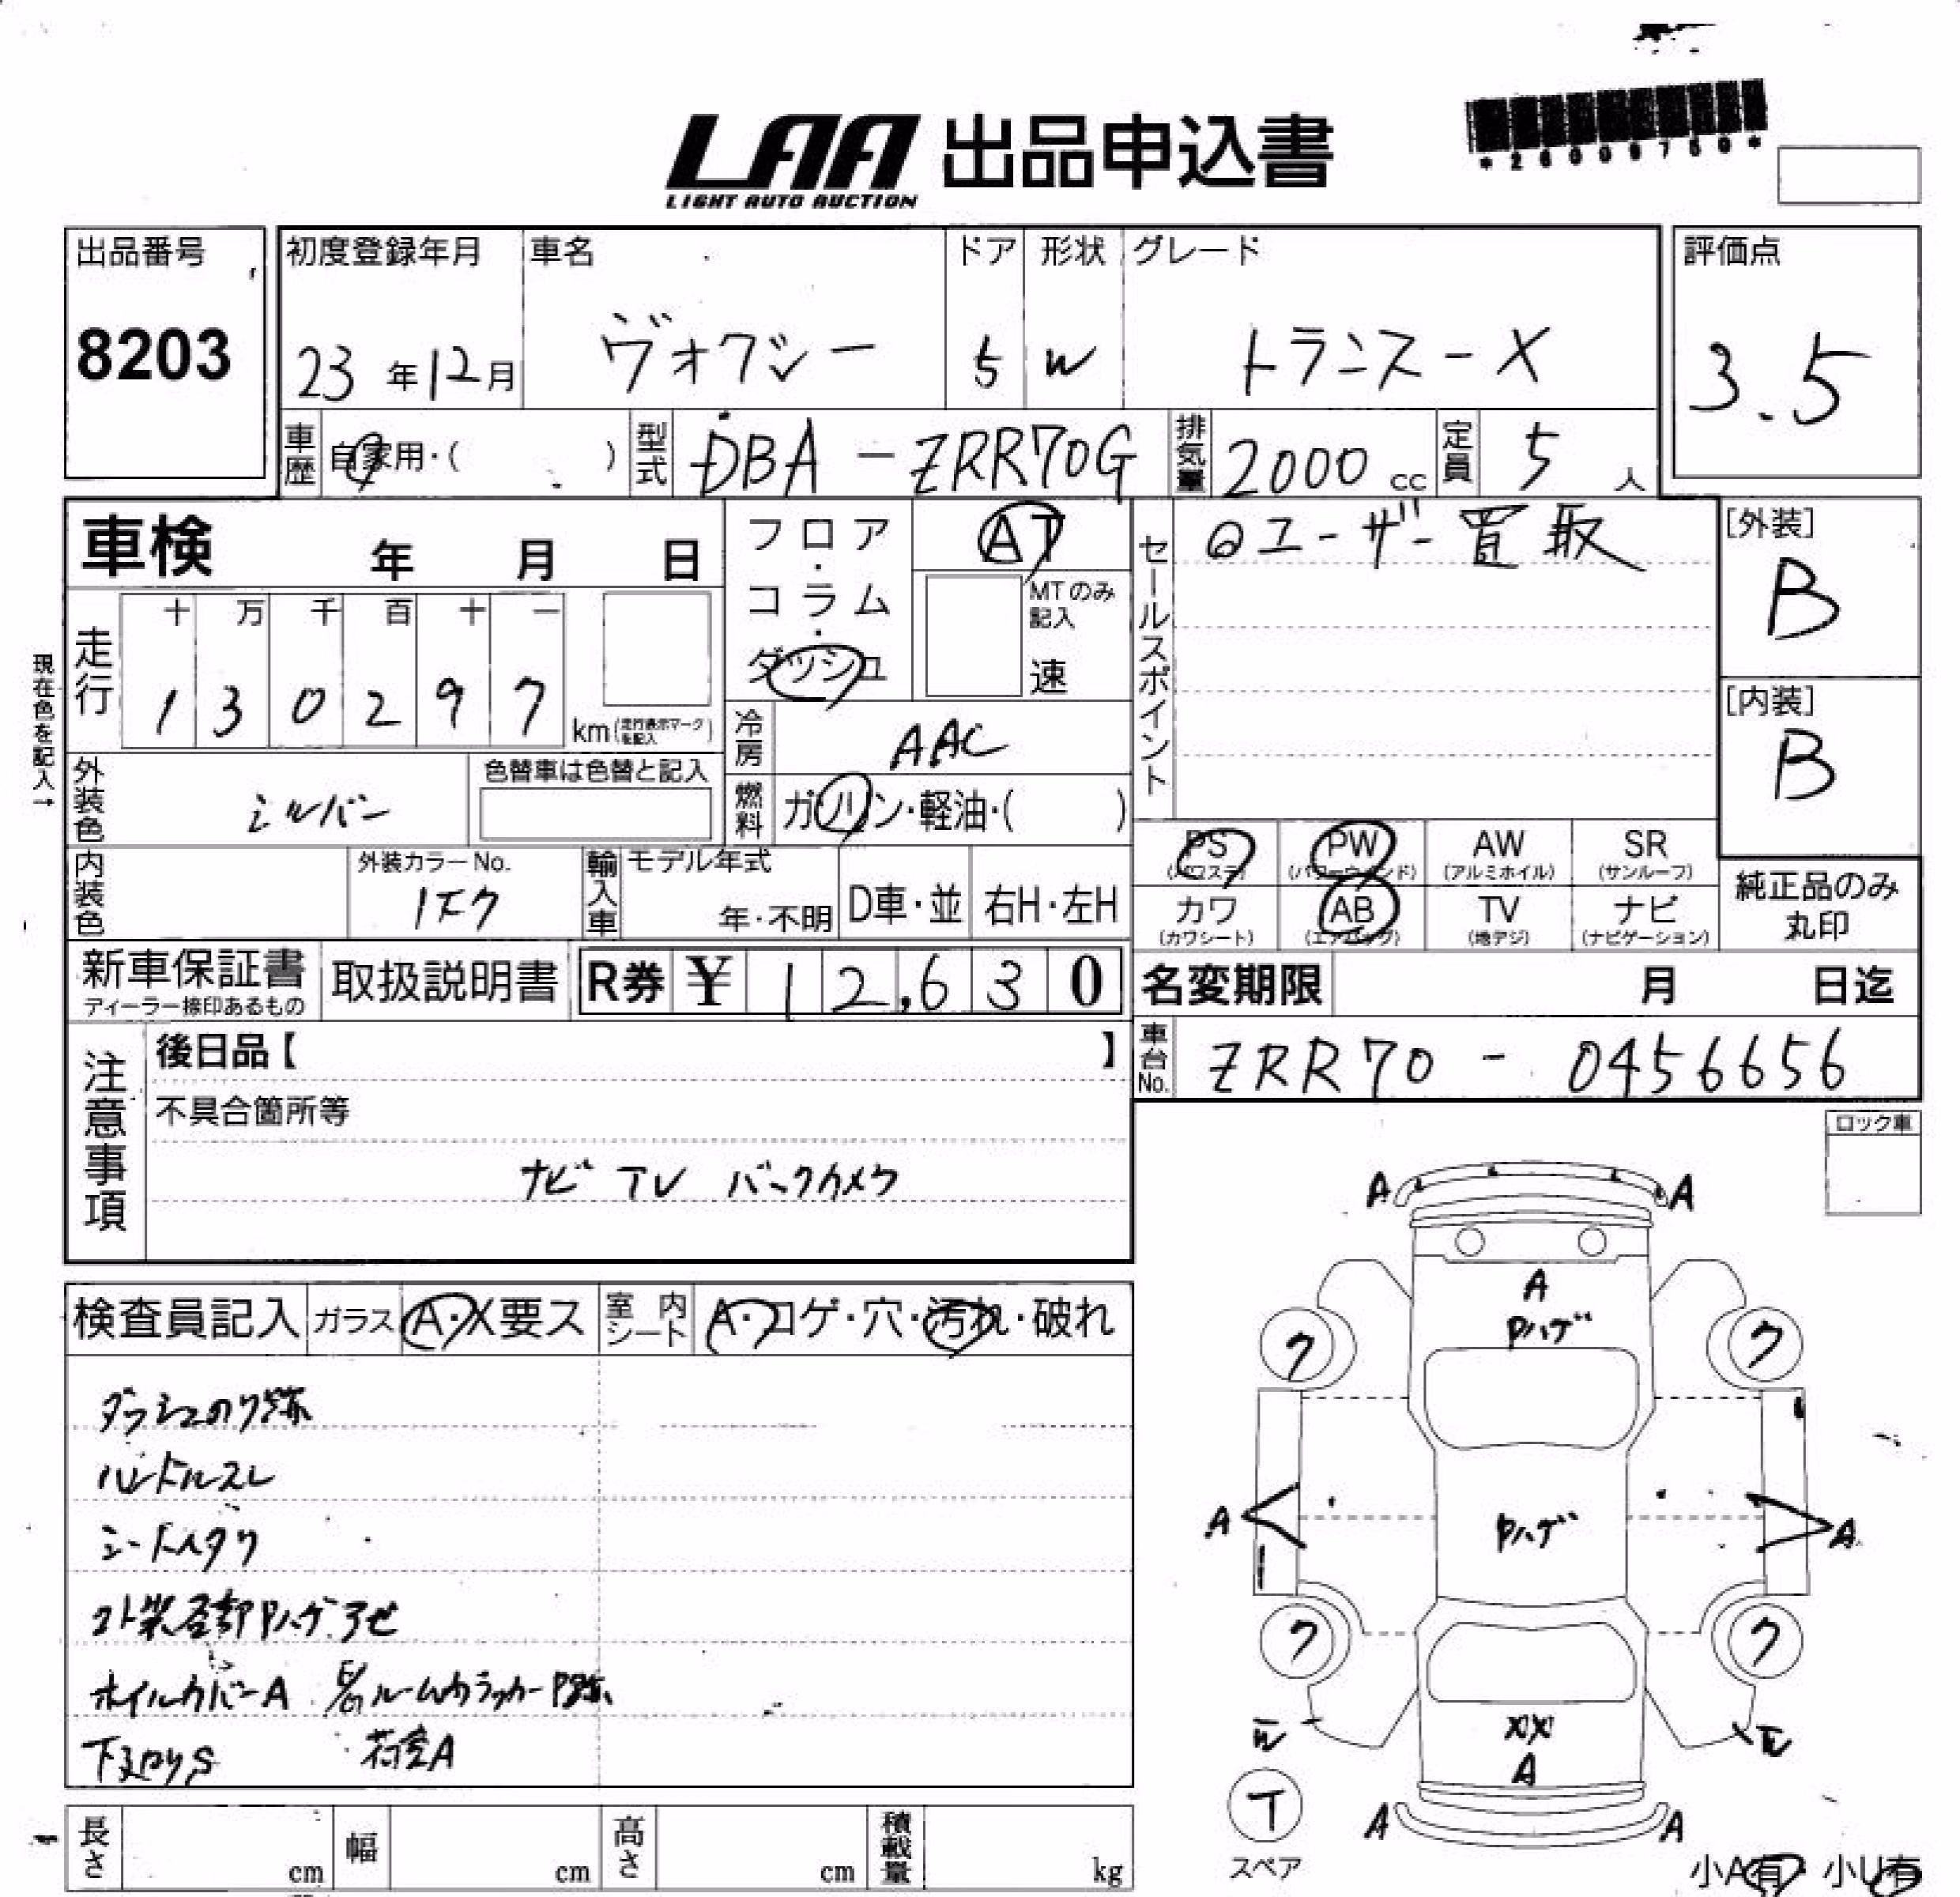 LAA 出品申込書
LIGHT AUTO AUCTION
*26009750*
出品番号
8203
初度登録年月 車名 ドア 形状 グレード
23年12月 ヴォクシー 5 W トランス-X
評価点
3.5
車歴 自家用・( ) 型式 DBA-ZRR70G 排気量 2000cc 定員 5人
車検 年 月 日
フロア・コラム・ダッシュ
AT
MTのみ記入
速
セールスポイント
◎ユーザー買取
[外装]
B
[内装]
B
現在色を記入→
走行 十 万 千 百 十 一
1 3 0 2 9 7 km(走行表示マークを記入)
冷房 AAC
外装色 シルバー
色替車は色替と記入
燃料 ガソリン・軽油・( )
内装色
外装カラーNo.
1F7
輸入車 モデル年式
年・不明 D車・並 右H・左H
PS PW AW SR
(パワステ) (パワーウィンド) (アルミホイル) (サンルーフ)
カワ AB TV ナビ
(カワシート) (エアバッグ) (地デジ) (ナビゲーション)
純正品のみ
丸印
新車保証書 取扱説明書 R券 ¥ 12,630
ディーラー捺印あるもの
名変期限 月 日迄
車台No. ZRR70-0456656
注意事項
後日品【 】
不具合箇所等
ナビ TV バックカメラ
ロック車
検査員記入 ガラス A・X要ス 室内シート A・コゲ・穴・汚れ・破れ
ダッシュのり跡
ハンドルスレ
シートヘタリ
外装各部Pハゲアセ
ホイルカバーA
下回りS 荷室A
A A
A
Pハゲ
ク ク
A A
Pハゲ
ク ク
XX
A
T
A A
スペア
小A有 小U有
長さ cm 幅 cm 高さ cm 積載量 kg